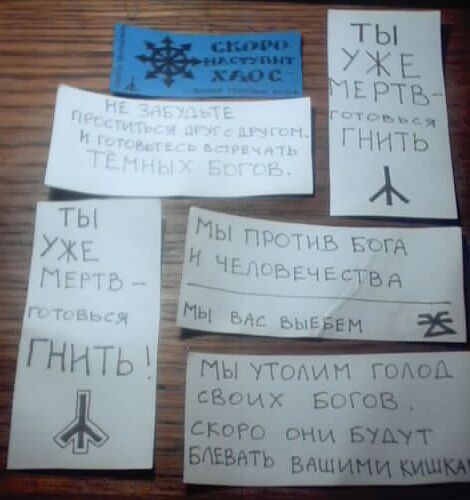 СКОРО
НАСТУПИТ
ХАОС
НЕ ЗАБУДЬТЕ
ПРОСТИТЬСЯ ДРУГ С ДРУГОМ.
И ГОТОВЬТЕСЬ ВСТРЕЧАТЬ
ТЁМНЫХ БОГОВ.
ТЫ
УЖЕ
МЕРТВ-
ГОТОВЬСЯ
ГНИТЬ
ТЫ
УЖЕ
МЕРТВ-
ГОТОВЬСЯ
ГНИТЬ!
МЫ ПРОТИВ БОГА
И ЧЕЛОВЕЧЕСТВА
МЫ ВАС ВЫЕБЕМ
МЫ УТОЛИМ ГОЛОД
СВОИХ БОГОВ.
СКОРО ОНИ БУДУТ
БЛЕВАТЬ ВАШИМИ КИШКАМ